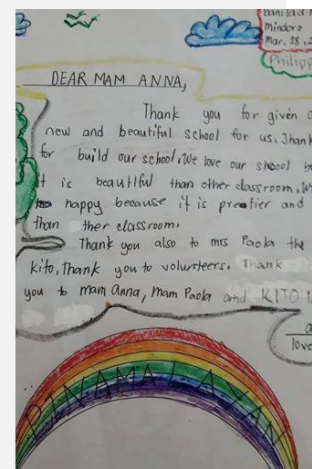 Mindoro
Mar, 18, 2
Philipp
DEAR MAM ANNA,
Thank you for given a
new and beautiful school for us. Thank
for build our school. We love our shoool be
it is beautiful than other classroom. We
happy because it is preatier and
than ther classroom.
Thank you also to mrs Paola the
kito, Thank you to volunteers. Thank
you to mam Anna, mam Paola and KITO
love
PINAMALAYAN